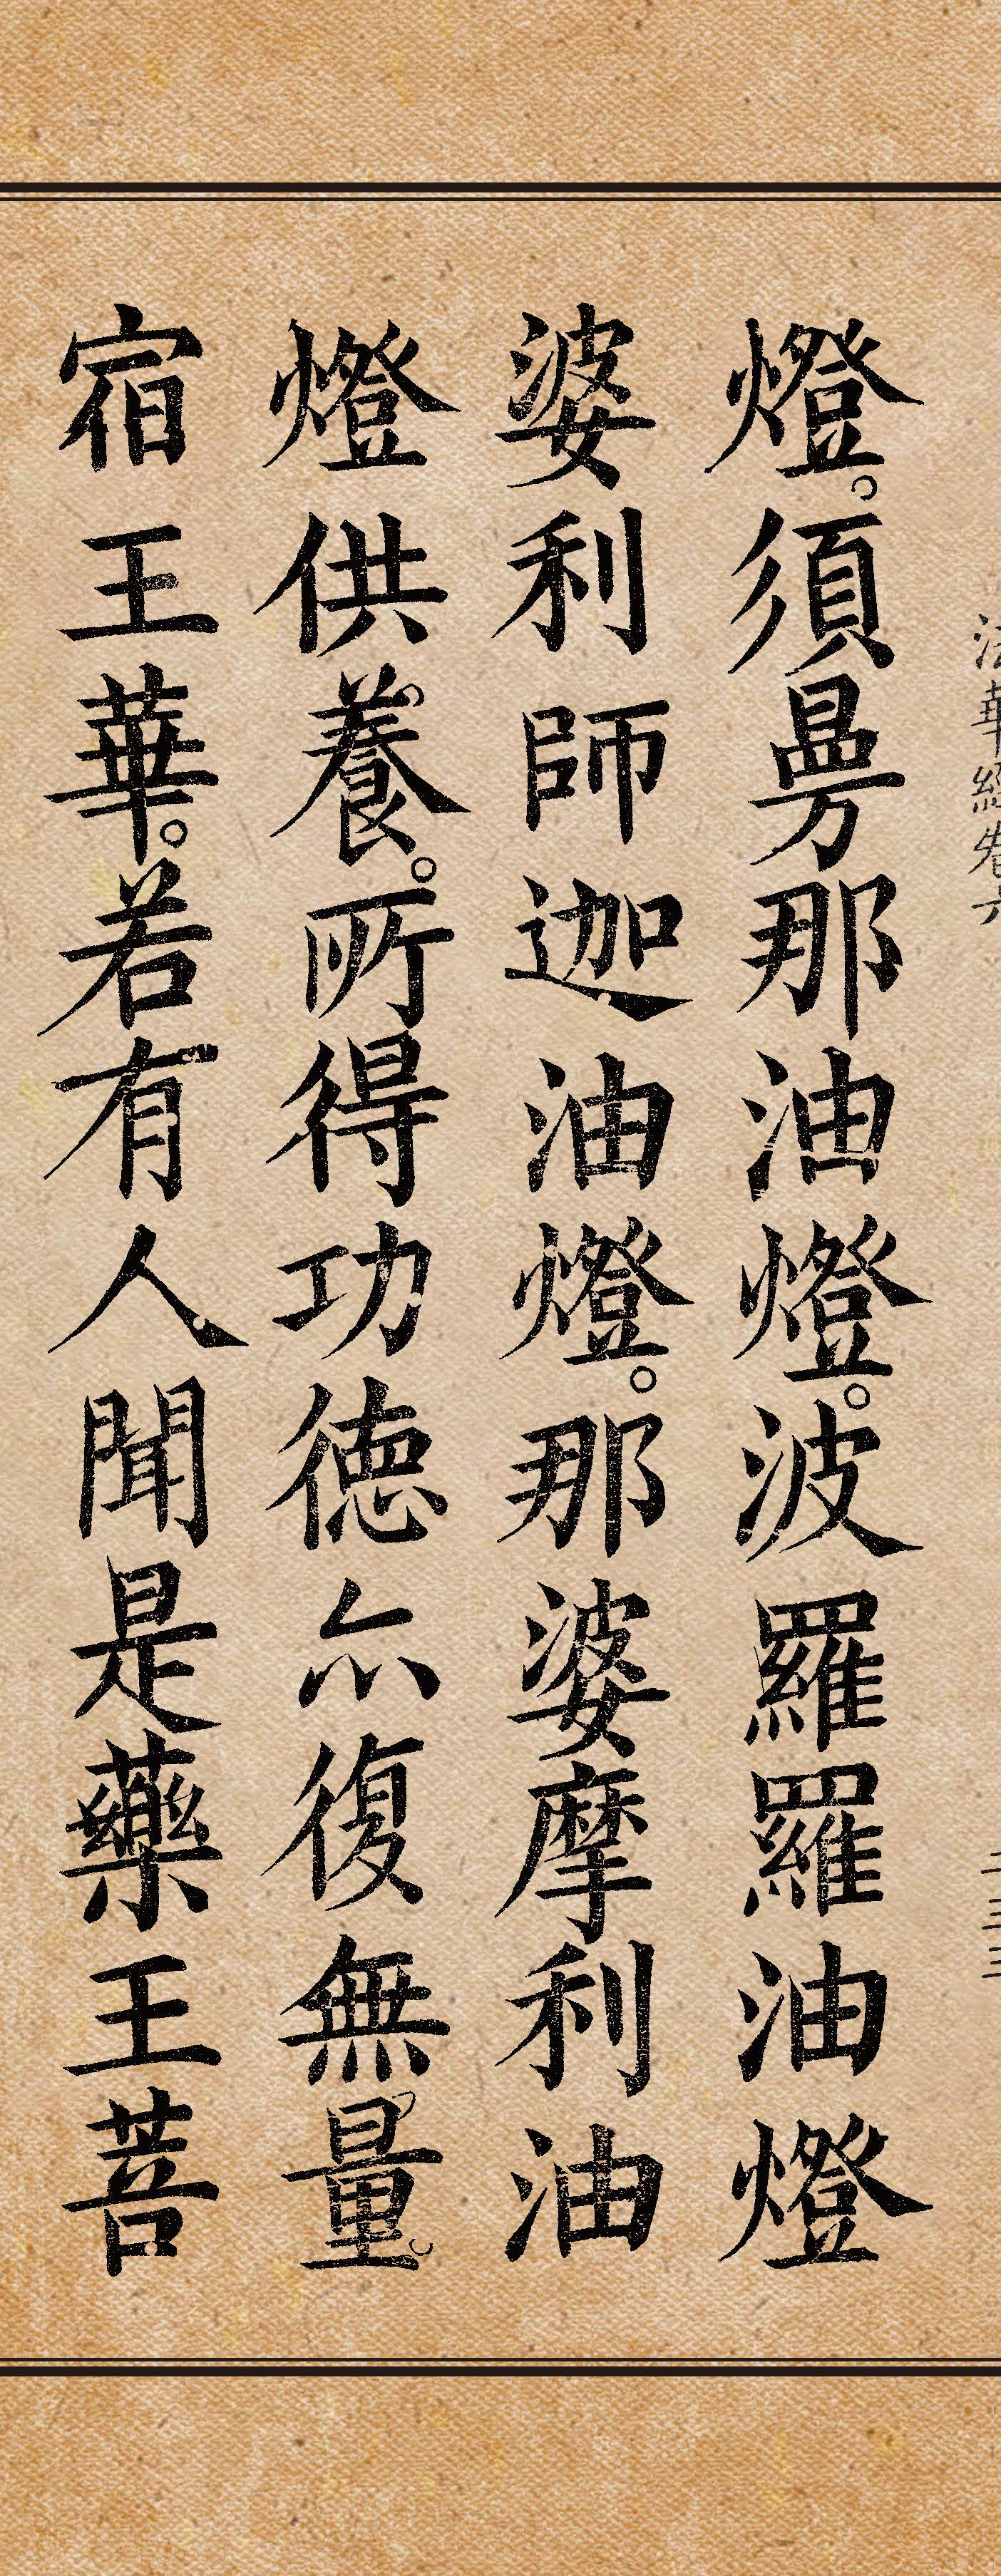 法華經卷六
二三三
燈。須曼那油燈。波羅羅油燈
婆利師迦油燈。那婆摩利油
燈供養。所得功德亦復無量。
宿王華。若有人聞是藥王菩